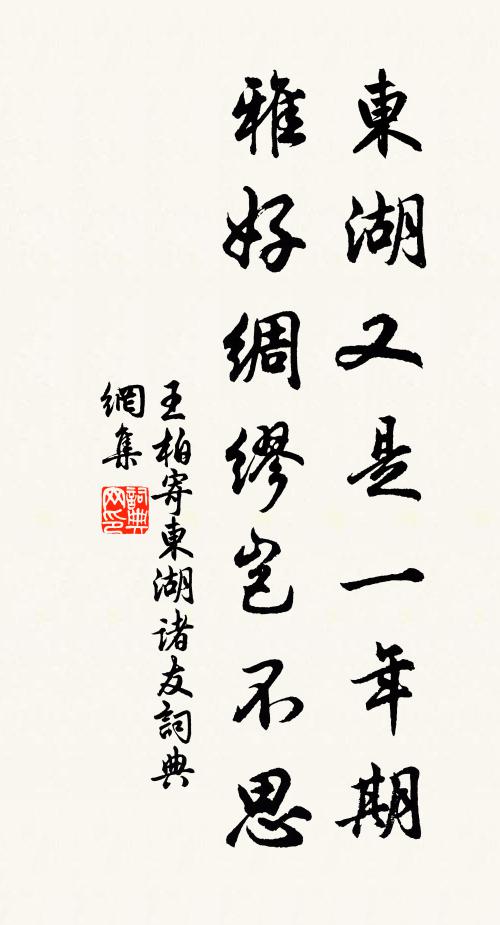 東湖又是一年期
雅好綢繆豈不思
王柏寄東湖諸友詞典
網集
詞典
网印